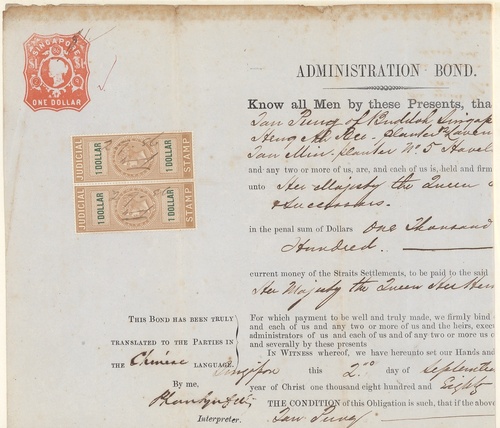 SINGAPORE
ONE DOLLAR
ADMINISTRATION BOND.
Know all Men by these Presents, tha
Tan Pung of Singap
Heng Ah planter
Tan Min planter No 5 Havel
and any two or more of us, are, and each of us is, held and firm
unto Her Majesty the Queen
Successors.
in the penal sum of Dollars One Thousand
Hundred.
current money of the Straits Settlements, to be paid to the said
Her Majesty the Queen Her Hei
For which payment to be well and truly made, we firmly bind
and each of us and any two or more of us and the heirs, exec
administrators of us and each of us and of any two or more of us
and severally by these presents
IN WITNESS whereof, we have hereunto set our Hands and
this 2nd day of September
year of Christ one thousand eight hundred and Eighty
THE CONDITION of this Obligation is such, that if the above
Tan Pung
JUDICIAL 1 DOLLAR 1 DOLLAR STAMP
JUDICIAL 1 DOLLAR 1 DOLLAR STAMP
THIS BOND HAS BEEN TRULY
TRANSLATED TO THE PARTIES IN
THE Chinese LANGUAGE.
By me.
Interpreter.